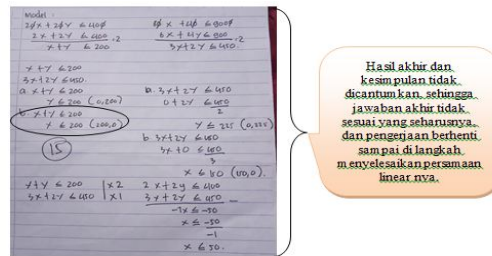 Model :
20x + 20y ≤ 400
2x + 2y ≤ 400 :2
x + y ≤ 200
x + 4y ≤ 900
6x + 4y ≤ 900 :2
3x + 2y ≤ 450.
x + y ≤ 200
3x + 2y ≤ 450.
a. x + y ≤ 200
y ≤ 200 (0,200)
b. x + y ≤ 200
x ≤ 200 (200,0)
15
a. 3x + 2y ≤ 450
0 + 2y ≤ 450
2
y ≤ 225 (0,225)
b. 3x + 2y ≤ 450
3x + 0 ≤ 450
3
x ≤ 150 (150,0).
x + y ≤ 200 | x2
3x + 2y ≤ 450 | x1
2x + 2y ≤ 400
3x + 2y ≤ 450 -
-1x ≤ -50
x ≤ -50
-1
x ≤ 50.
Hasil akhir dan
kesimpulan tidak
dicantumkan, sehingga
jawaban akhir tidak
sesuai yang seharusnya,
dan pengerjaan berhenti
sampai di langkah
menyelesaikan persamaan
linear nya.